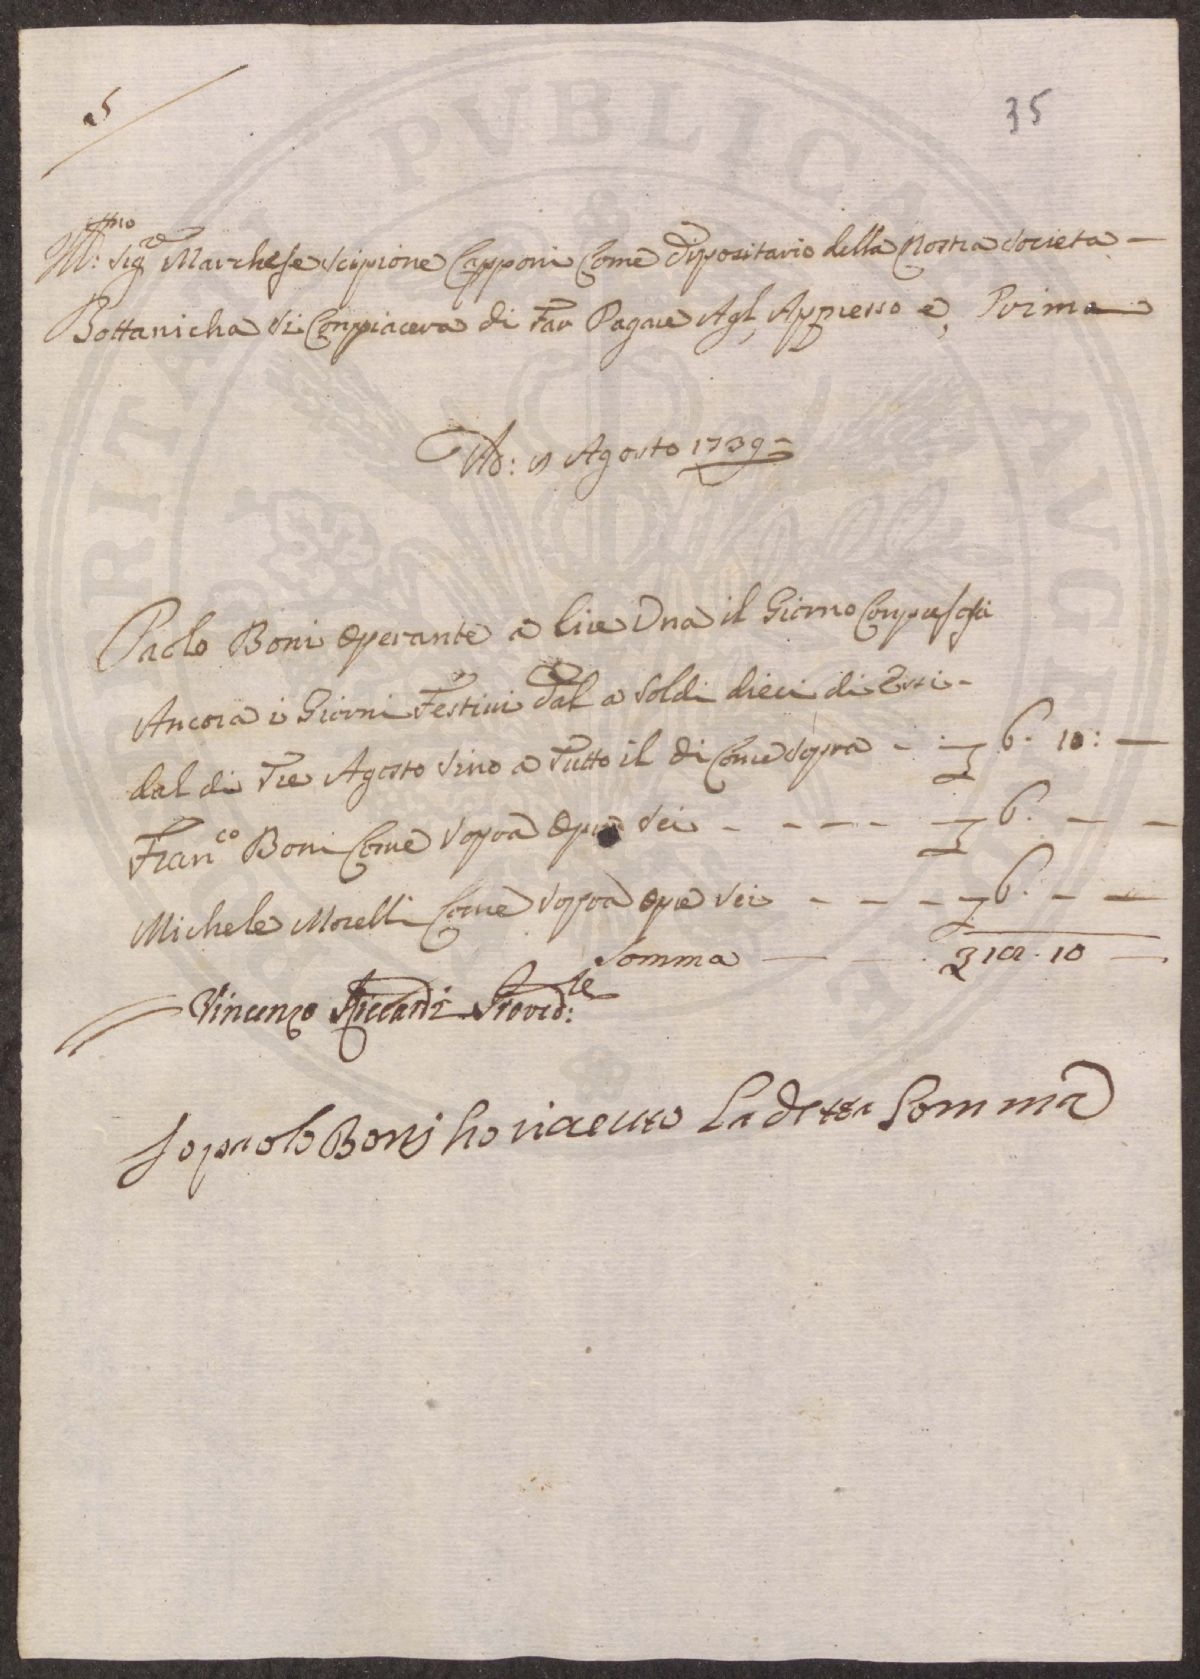 5
35
Ill:mo Sig:re Marchese Scipione Capponi Come Dipositario della Nostra Società
Bottanicha Si Conpiacera di Far Pagare Agl, Appresso e, Prima
Ad: 9 Agosto 1739
Paolo Boni Operante a lire Una il Giorno Conpresoci
Ancora i Giorni Festivi a Soldi dieci di Essi
dal di Tre Agosto Sino a Tutto il di Come Sopra - 6. 10: -
Fran:co Boni Come Sopra Opre Sei - - - - 6. - -
Michele Morelli Come Sopra Opre Sei - - - 6. - -
Somma - - 18. 10 -
Vincenzo Riccardi Proved:re
Io paolo Boni ho riceuto La detta Somma
PVBLICA